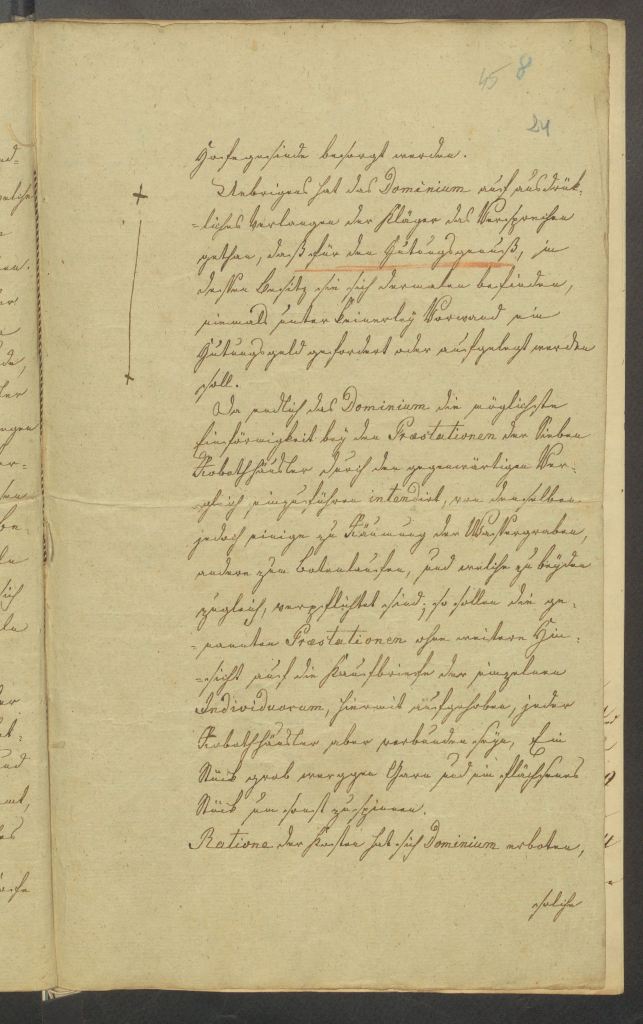 45 8
24
Hofegesinde besorgt werden.
Uebrigens hat das Dominium auf ausdrük-
-liches Verlangen der Kläger das Versprechen
gethan, daß für den Hutungsgenuß, in
dessen Besitz sie sich dermalen befinden,
niemals unter keinerley Vorwand ein
Hutungsgeld gefordert oder aufgelegt werden
soll.
Da endlich das Dominium die möglichste
Einförmigkeit bey den Præstationen der Sieben
Robothhäusler durch den gegenwärtigen Ver-
-gleich einzuführen intendirt, von denselben
jedoch einige zu Räumung der Wassergraben,
andere zum Botenlaufen, und welche zu beyden
zugleich, verpflichtet sind; so sollen die ge-
-nannten Præstationen ohne weitere Hin-
-sicht auf die Kaufbriefe der einzelnen
Individuorum, hiermit aufgehoben, jeder
Robothhäusler aber verbunden seyn, Ein
Stück grob werggen Garn und ein flächsenes
Stück um sonst zu spinnen.
Ratione der Kosten hat sich Dominium erboten,
solche